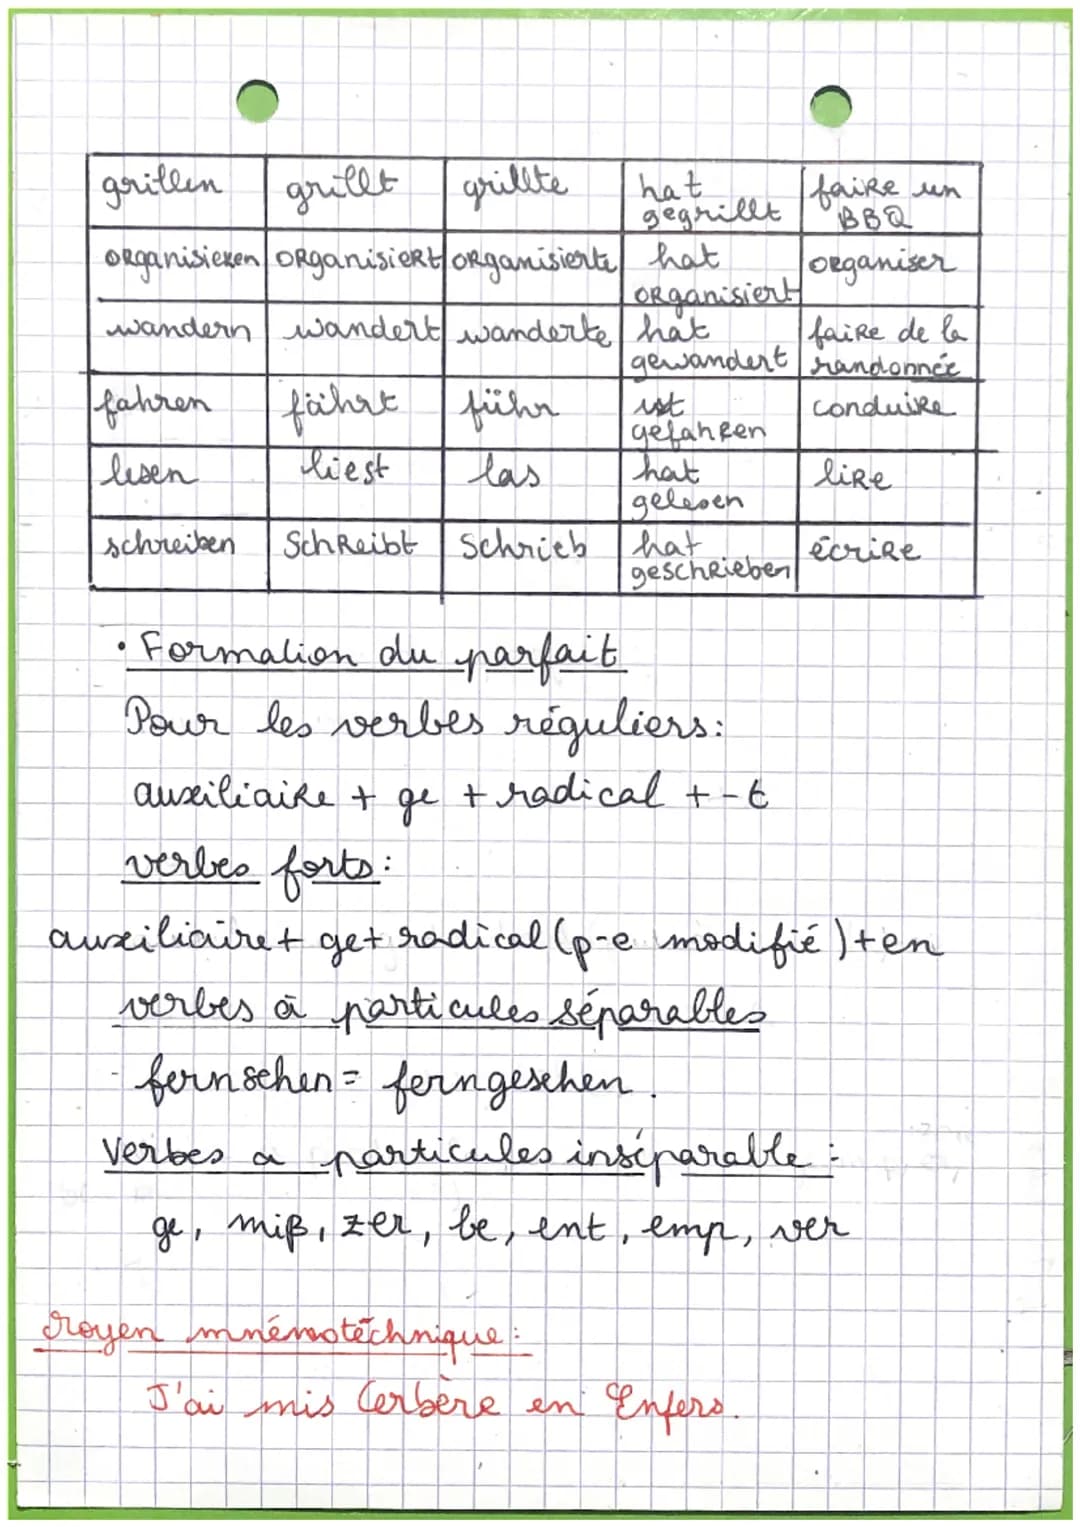 grillen grillt grillte hat gegrillt faire un BBQ
organisieren organisiert organisierte hat organisiert organiser
wandern wandert wanderte hat gewandert faire de la randonnée
fahren fährt führ ist gefahren conduire
lesen liest las hat gelesen lire
schreiben schreibt schrieb hat geschrieben écrire
• Formation du parfait
Pour les verbes réguliers:
auxiliaire + ge + radical + -t
verbes forts:
auxiliaire + ge + radical (p-e modifié) + en
verbes à particules séparables
- fernsehen = ferngesehen.
Verbes a particules inséparable :
ge, miß, zer, be, ent, emp, ver
Moyen mnémotéchnique :
J'ai mis Cerbère en Enfers.